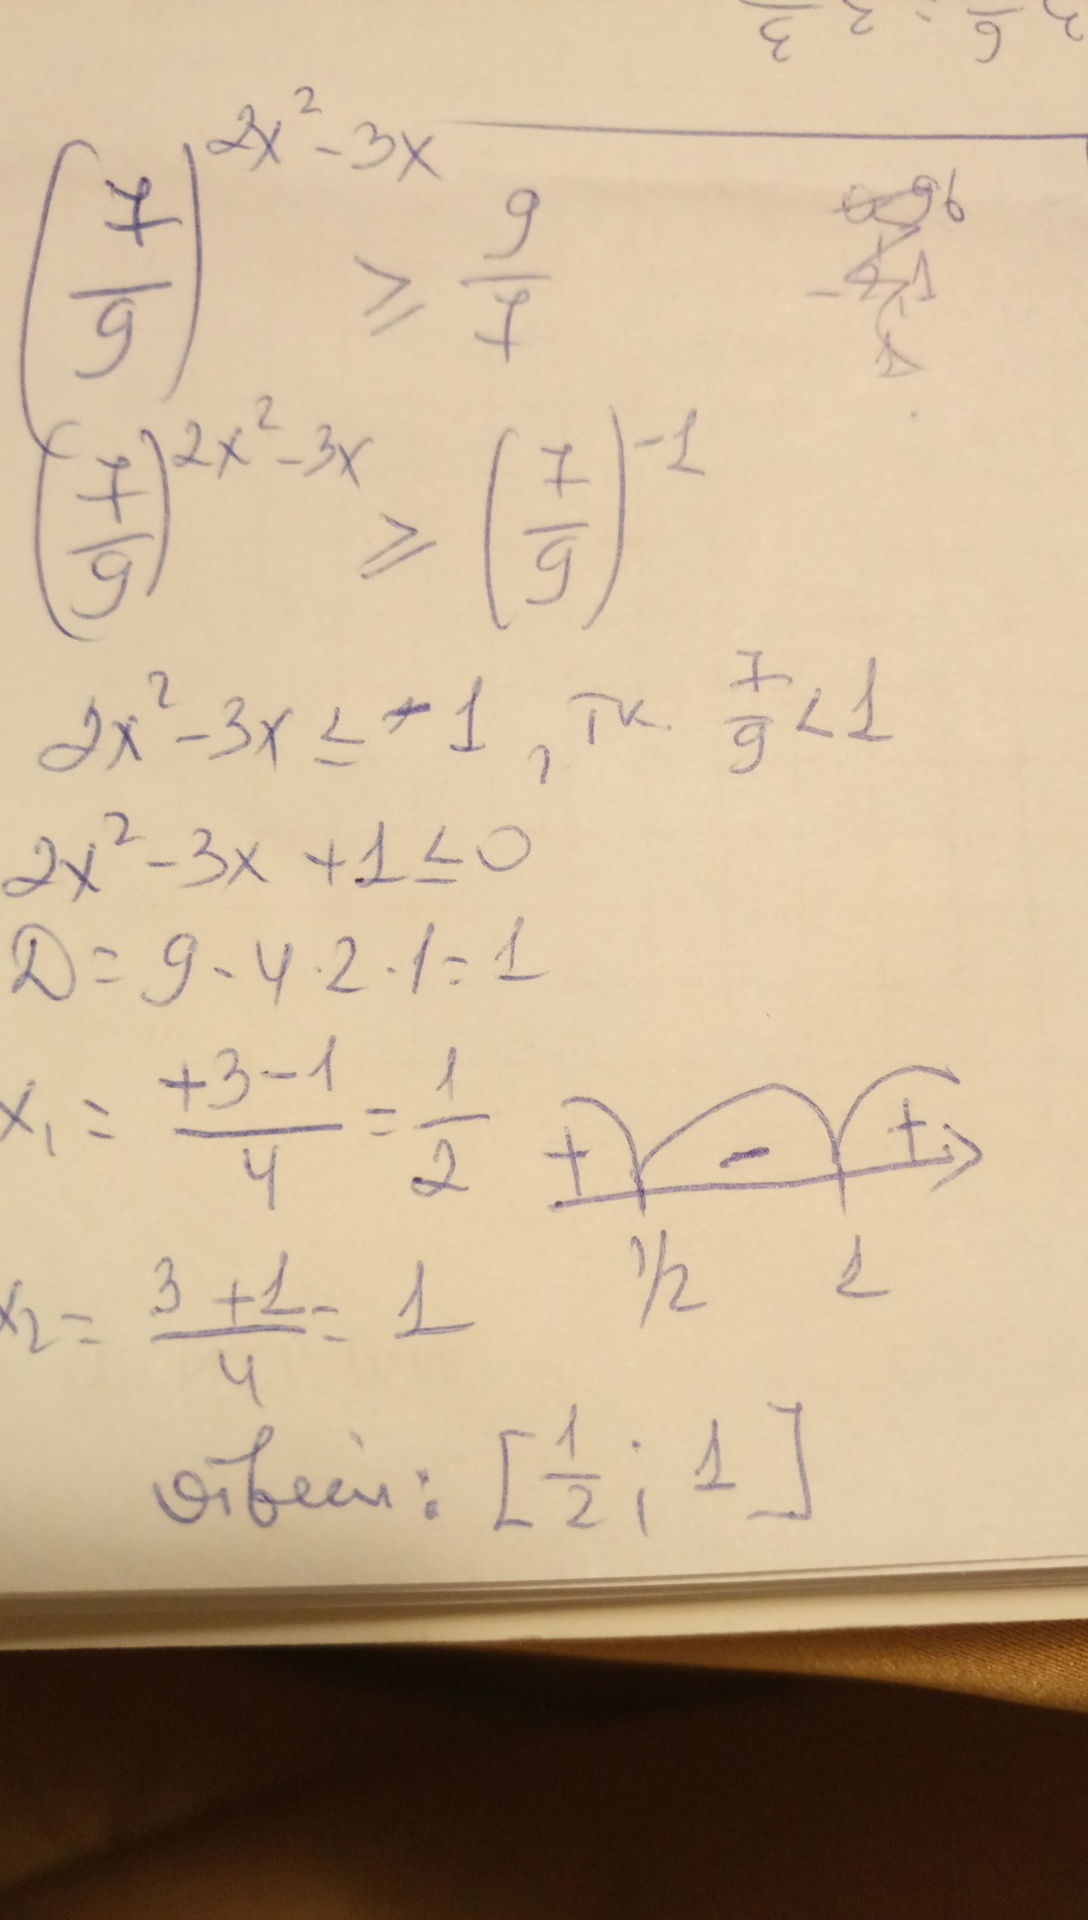 (7/9)^(2x²-3x) ≥ 9/7
(7/9)^(2x²-3x) ≥ (7/9)^(-1)
2x²-3x ≤ -1, тк 7/9 < 1
2x²-3x+1 ≤ 0
D = 9-4·2·1 = 1
x₁ = (+3-1)/4 = 1/2
+ - +
1/2 1
x₂ = (3+1)/4 = 1
ответ: [1/2; 1]